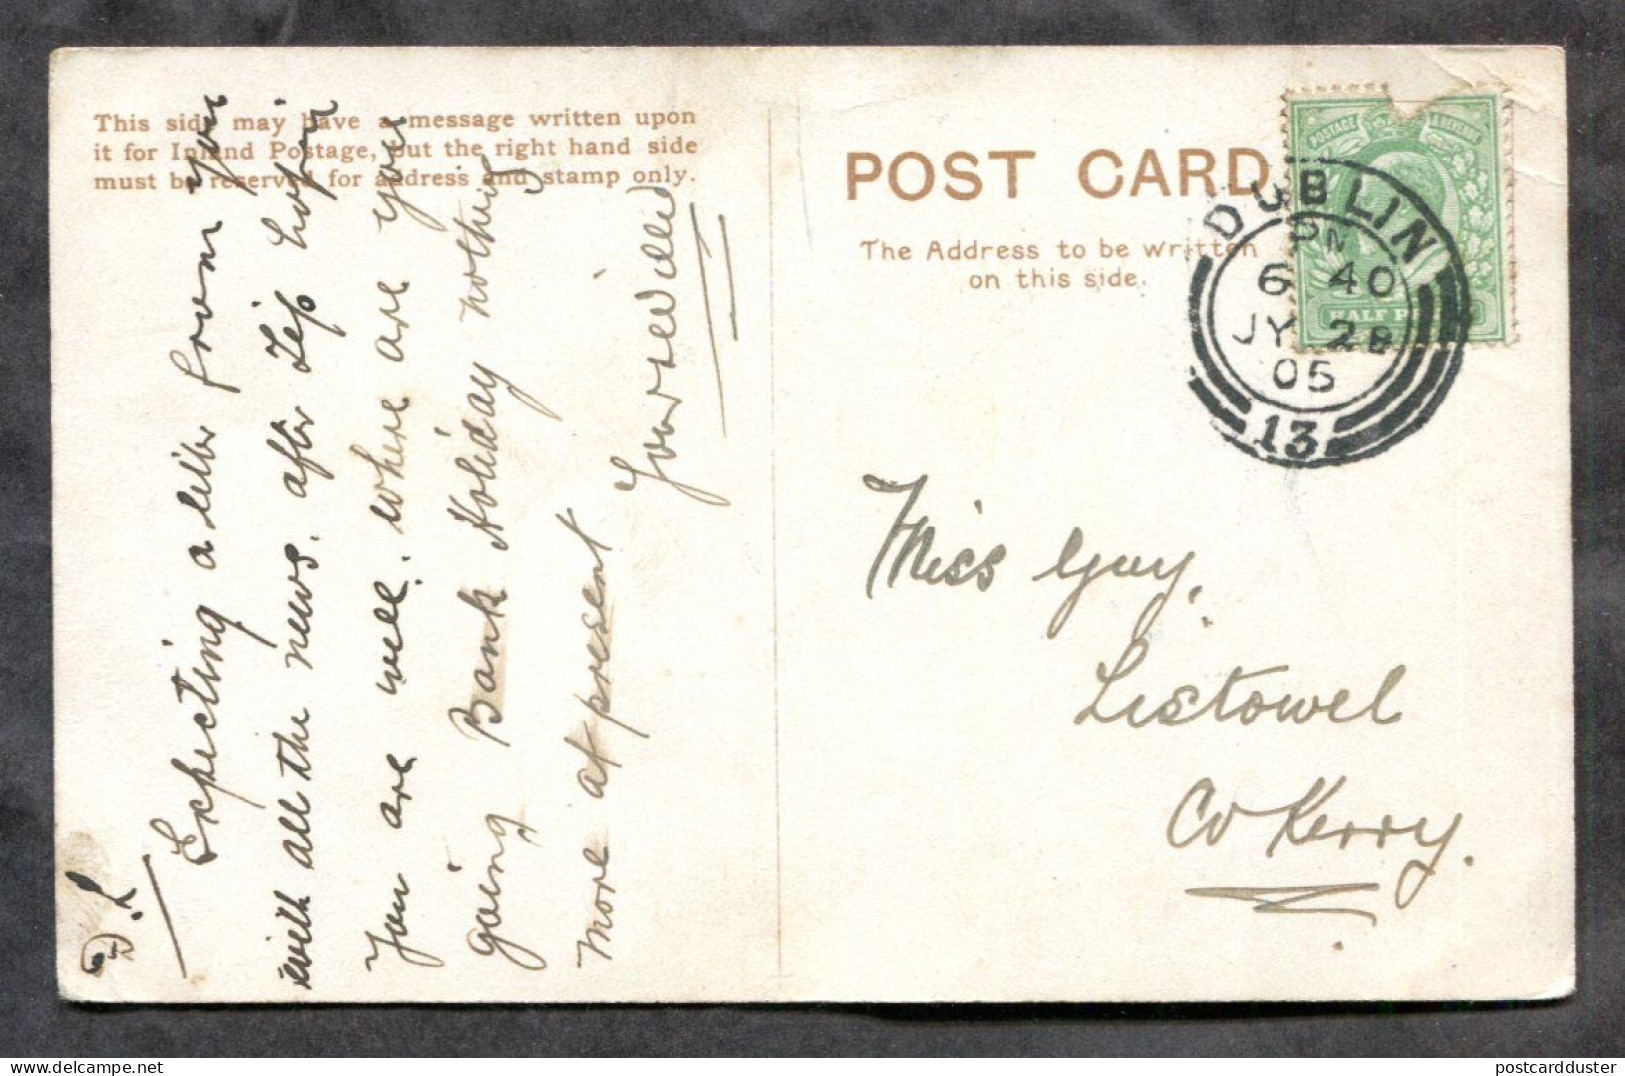 This side may have a message written upon
it for Inland Postage, but the right hand side
must be reserved for address and stamp only.
D. L
Expecting a letter from you
with all the news. after Leip hoping
you are well. where are you
going Bank Holiday nothing
more at present
Yours Willie
POST CARD
The Address to be written
on this side.
POSTAGE & REVENUE
HALF P
DUBLIN
6 40
JY 28
05
13
Miss Guy.
Listowel
Co Kerry.
delcampe.net
postcardduster